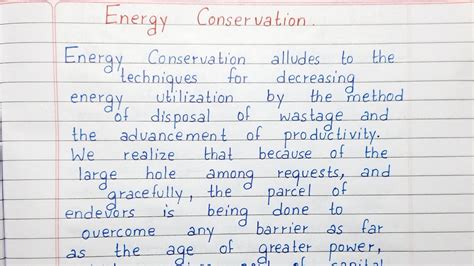 Energy Conservation.
Energy Conservation alludes to the
techniques for decreasing
energy utilization by the method
of disposal of wastage and
the advancement of productivity.
We realize that because of the
large hole among requests, and
gracefully, the parcel of
endevors is being done to
overcome any barrier as far
as the age of greater power,
of capital